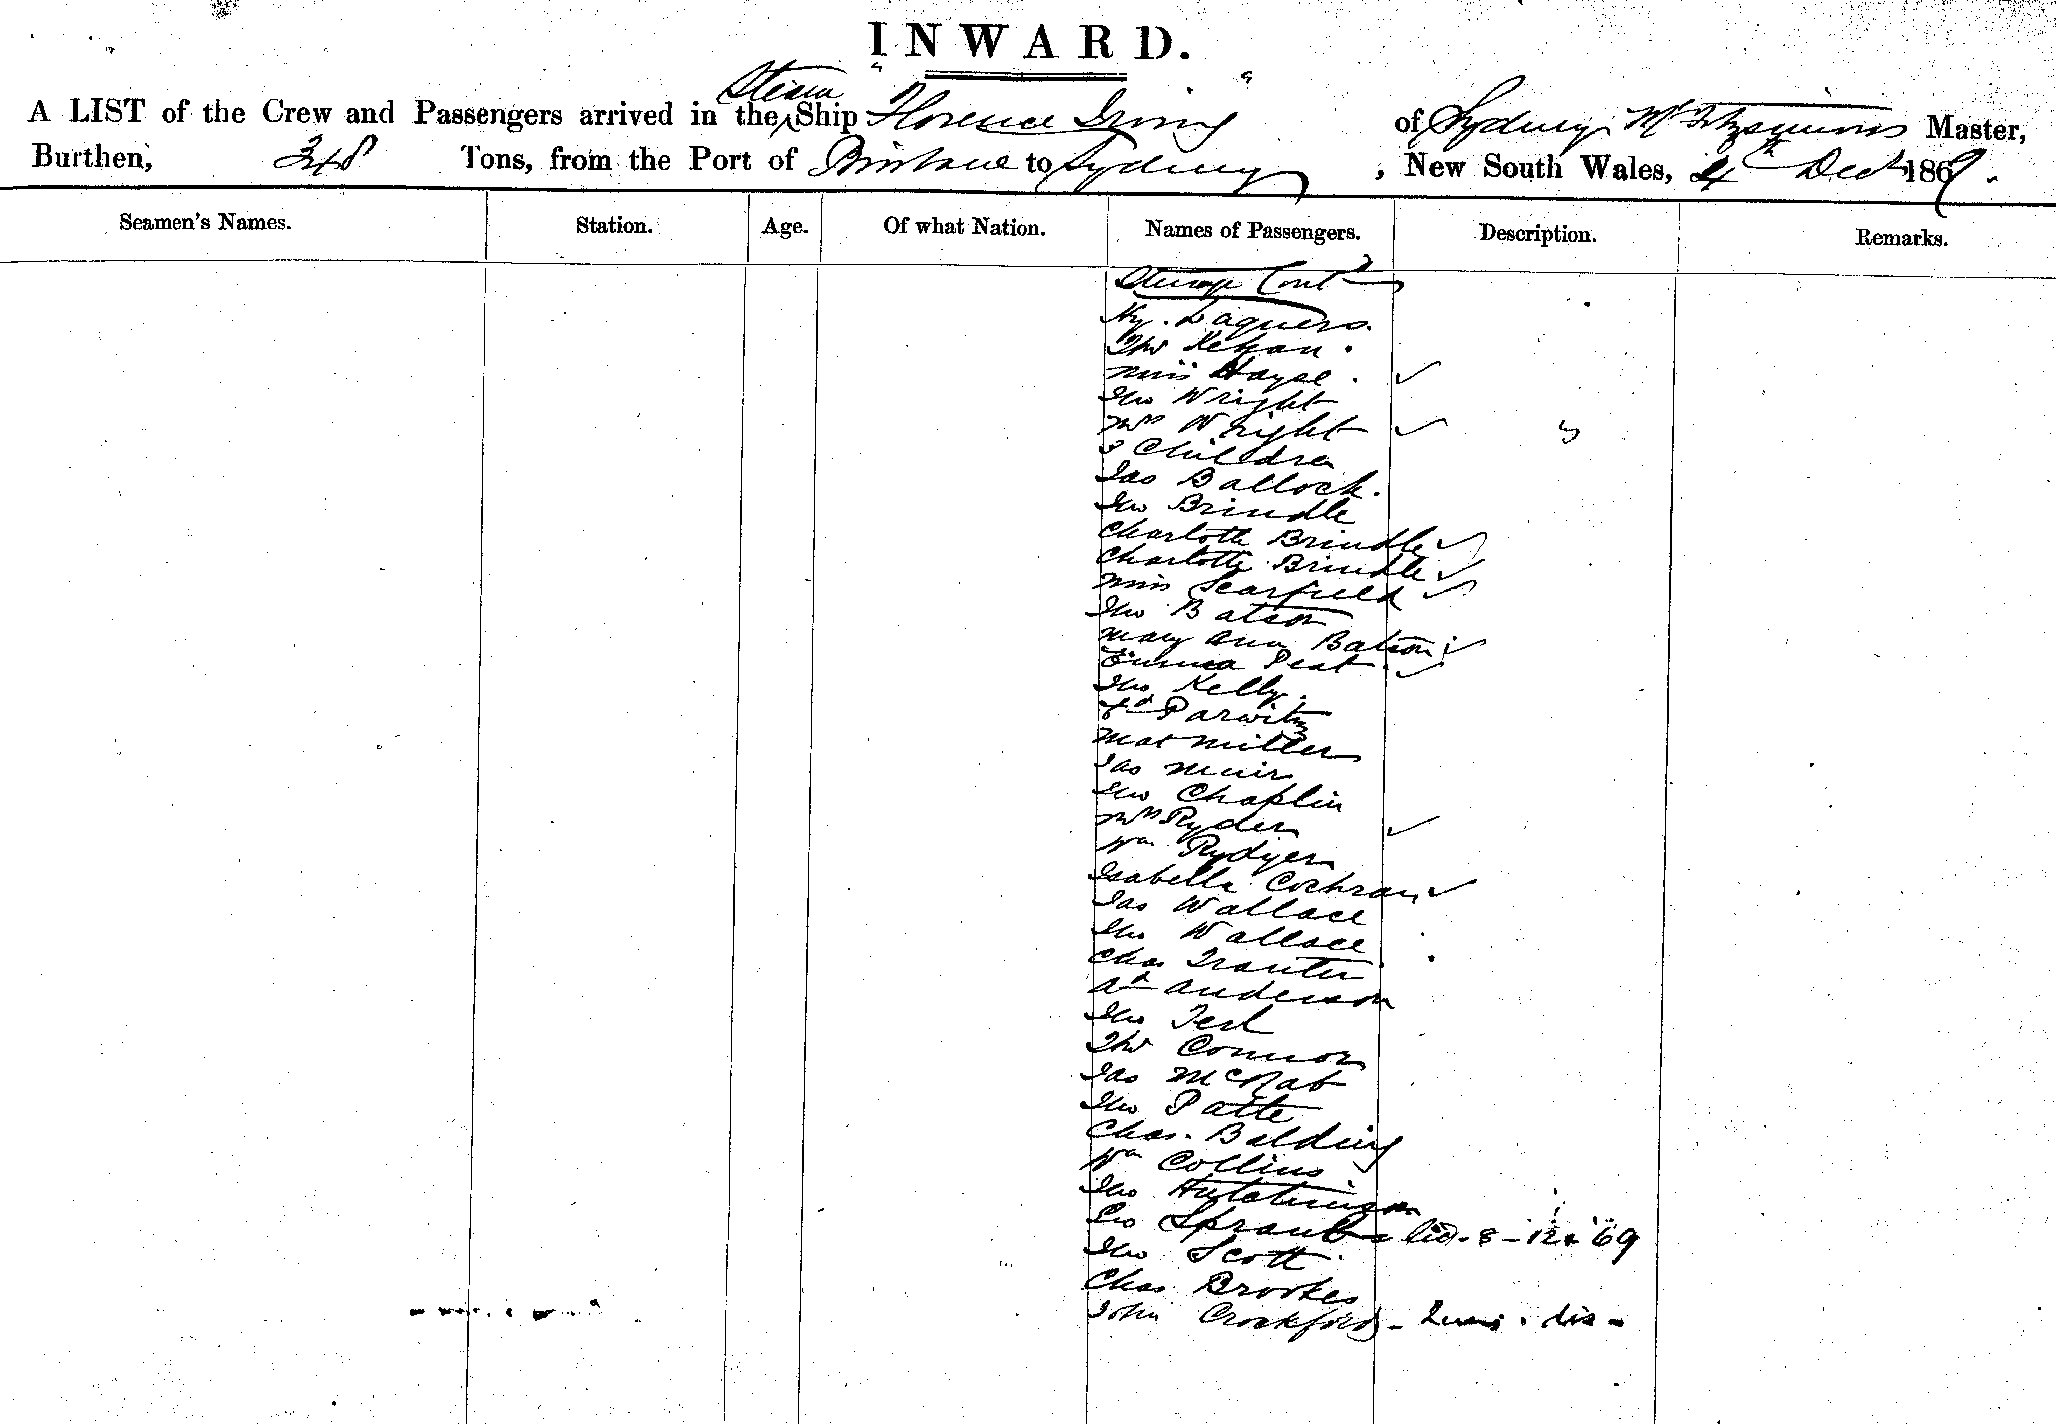 INWARD.
A LIST of the Crew and Passengers arrived in the Steam Ship Florence Irving of Sydney, Mc Fitzsimins Master,
Burthen, 348 Tons, from the Port of Brisbane to Sydney, New South Wales, 4th Dect 1869.
Seamen's Names. Station. Age. Of what Nation. Names of Passengers. Description. Remarks.
Steerage Contd
Hy. Laquers.
Tho
Miss Hayse.
Jno Wright
Mrs Wright
3 Children
Jas Ballock.
Jno Brindle
Charlotte Brindle
Charlotte Brindle
Miss Scarfield
Jno Batson
Mary Ann Batson
Emma Peat
Jno Kelly.
Parwitz
Mat Miller
Jas Muir
Jno Chaplin
Mrs Ryder
Wm Rydyer
Isabella Cochran
Jas Wallace
Jno Wallace
Chas Tranter
Ad Anderson
Jno Terl
Tho Connor
Jas McNab
Jno Patte
Chas. Balding
Wm Collins
Jno Hutchinson
Geo 8 - 12 '69
Jno Scott
Chas Brookes
John Crockford